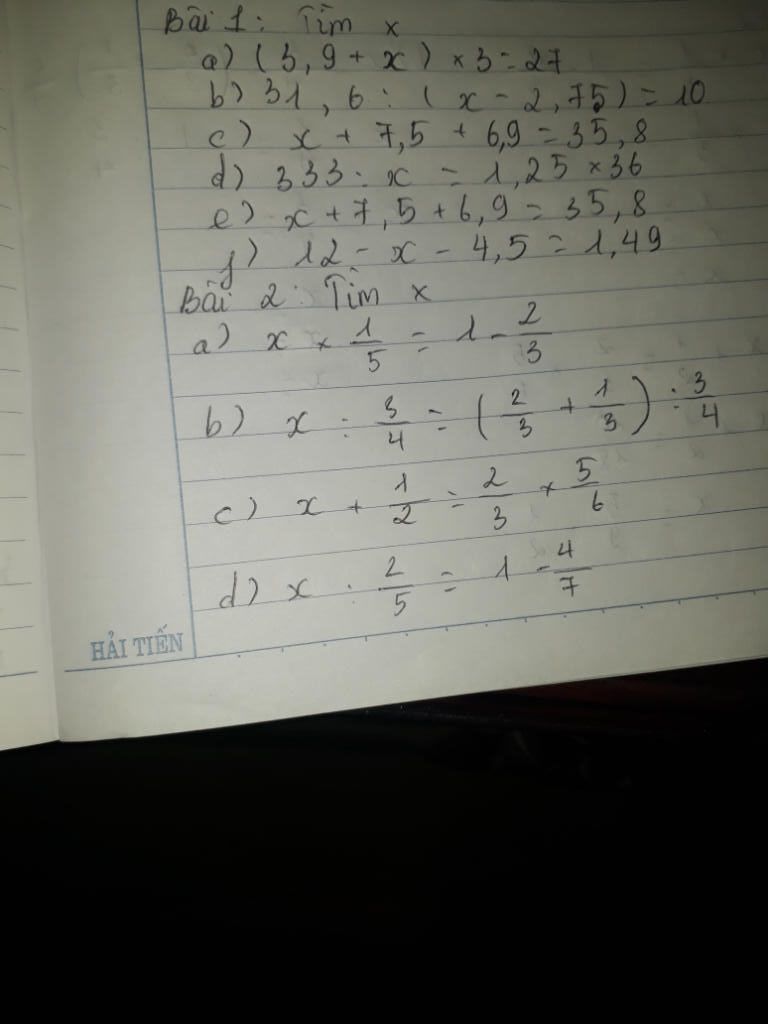 Bài 1: Tìm x
a) (3,9 + x) × 3 = 27
b) 31,6 : (x - 2,75) = 10
c) x + 7,5 + 6,9 = 35,8
d) 333 : x = 1,25 × 36
e) x + 7,5 + 6,9 = 35,8
f) 12 - x - 4,5 = 1,49
Bài 2: Tìm x
a) x × 1/5 = 1 - 2/3
b) x : 3/4 = (2/3 + 1/3) : 3/4
c) x + 1/2 = 2/3 × 5/6
d) x : 2/5 = 1 - 4/7
HẢI TIẾN